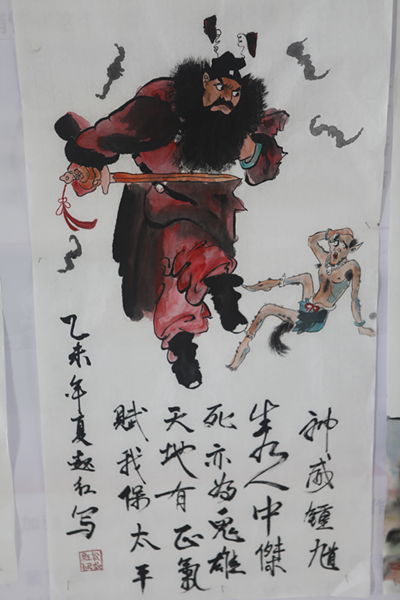 神威鍾馗
生为人中傑
死亦为鬼雄
天地有正氣
賦我保太平
乙未年夏 红写